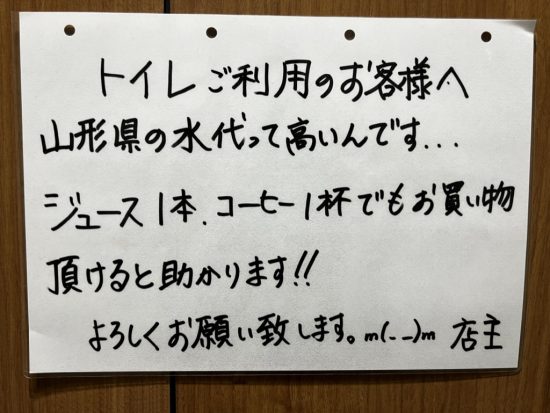 トイレご利用のお客様へ
山形県の水代って高いんです...
ジュース1本、コーヒー1杯でもお買い物
頂けると助かります!!
よろしくお願い致します。m(_ _)m 店主